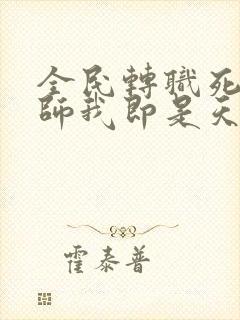 全民轉職死
師我即是天
霍泰普